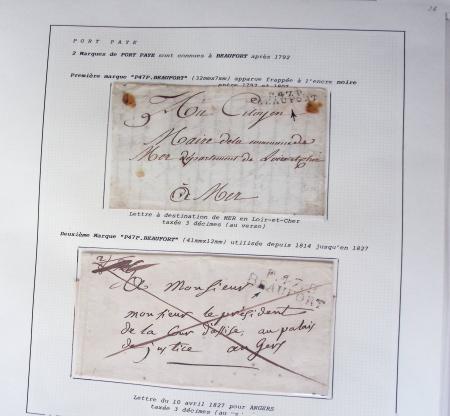 26
PORT PAYE
2 Marques de PORT PAYE sont connues à BEAUFORT après 1792
Première marque "P47P.BEAUFORT" (32mmx7mm) apparue frappée à l'encre noire
entre 1792 et
P.47.P.
BEAUFORT
Au Citoyen
Maire de la commune de
Mer département de Loir et cher
à Mer
Lettre à destination de MER en Loir-et-Cher
taxée 3 décimes (au verso)
Deuxième Marque "P47P.BEAUFORT" (41mmx12mm) utilisée depuis 1814 jusqu'en 1827
P.47.P.
BEAUFORT
A Monsieur
monsieur le président
de la Cour d'assise, au palais
de justice angers
Lettre du 10 avril 1827 pour ANGERS
taxée 3 décimes (au